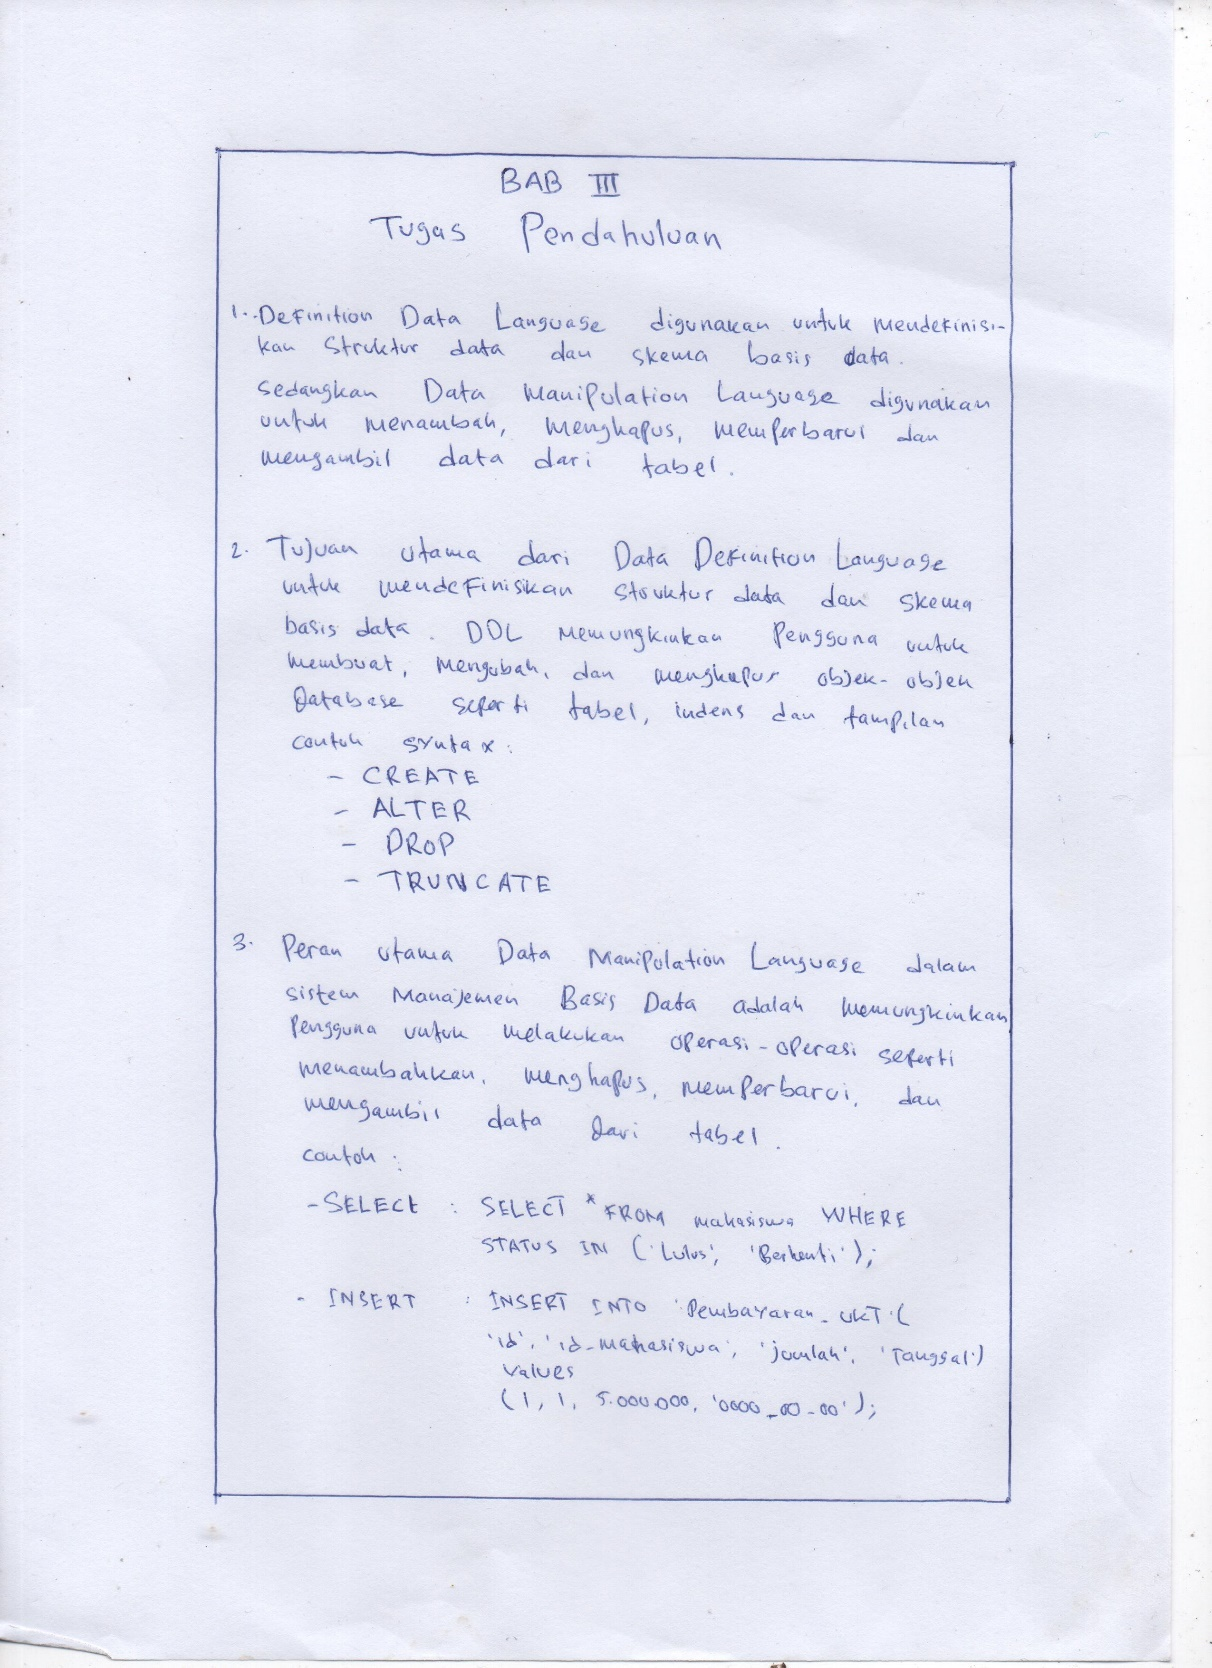 BAB III
Tugas Pendahuluan
1. Definition Data Language digunakan untuk mendefinisi-
kan Struktur data dan skema basis data.
Sedangkan Data Manipulation Language digunakan
untuk menambah, menghapus, memperbarui dan
mengambil data dari tabel.
2. Tujuan utama dari Data Definition Language
untuk mendefinisikan struktur data dan skema
basis data. DDL memungkinkan Pengguna untuk
membuat, mengubah, dan menghapus objek-objek
Database seperti tabel, indens dan tampilan
contoh syntax:
- CREATE
- ALTER
- DROP
- TRUNCATE
3. Peran utama Data Manipulation Language dalam
sistem Manajemen Basis Data adalah memungkinkan
Pengguna untuk melakukan operasi-operasi seperti
menambahkan, menghapus, memperbarui, dan
mengambil data dari tabel.
contoh:
- SELECT : SELECT * FROM mahasiswa WHERE
STATUS IN ('Lulus', 'Berhenti');
- INSERT : INSERT INTO 'Pembayaran_UKT'(
'id', 'id_mahasiswa', 'jumlah', 'Tanggal')
values
(1, 1, 5.000.000, '0000_00-00');